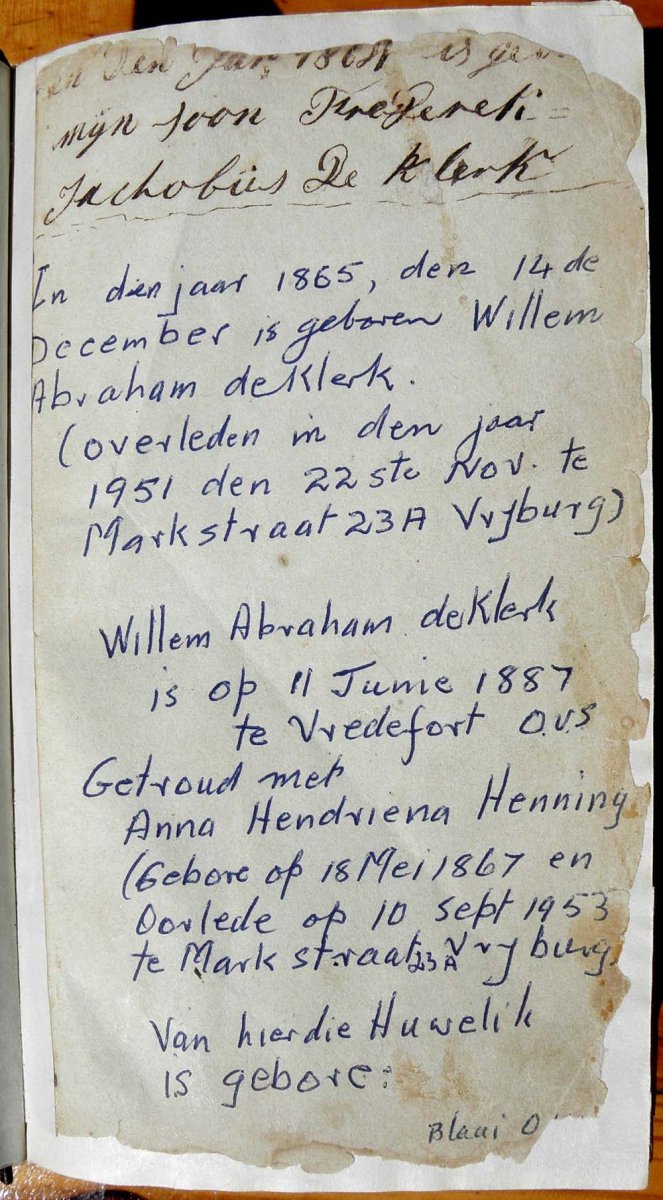 en Den Jan 1861 is ge
mijn soon Frederek=
Jachobüs De Klerk
In dien jaar 1865, den 14de
December is geboren Willem
Abraham de Klerk.
(overleden in den jaar
1951 den 22ste Nov. te
Markstraat 23A Vryburg)
Willem Abraham deKlerk
is op 11 Junie 1887
te Vredefort O.V.S
Getroud met
Anna Hendriena Henning
(Gebore op 18 Mei 1867 en
Oorlede op 10 Sept 1953
te Markstraat 23A Vryburg
Van hierdie Huwelik
is gebore:
Blaai O